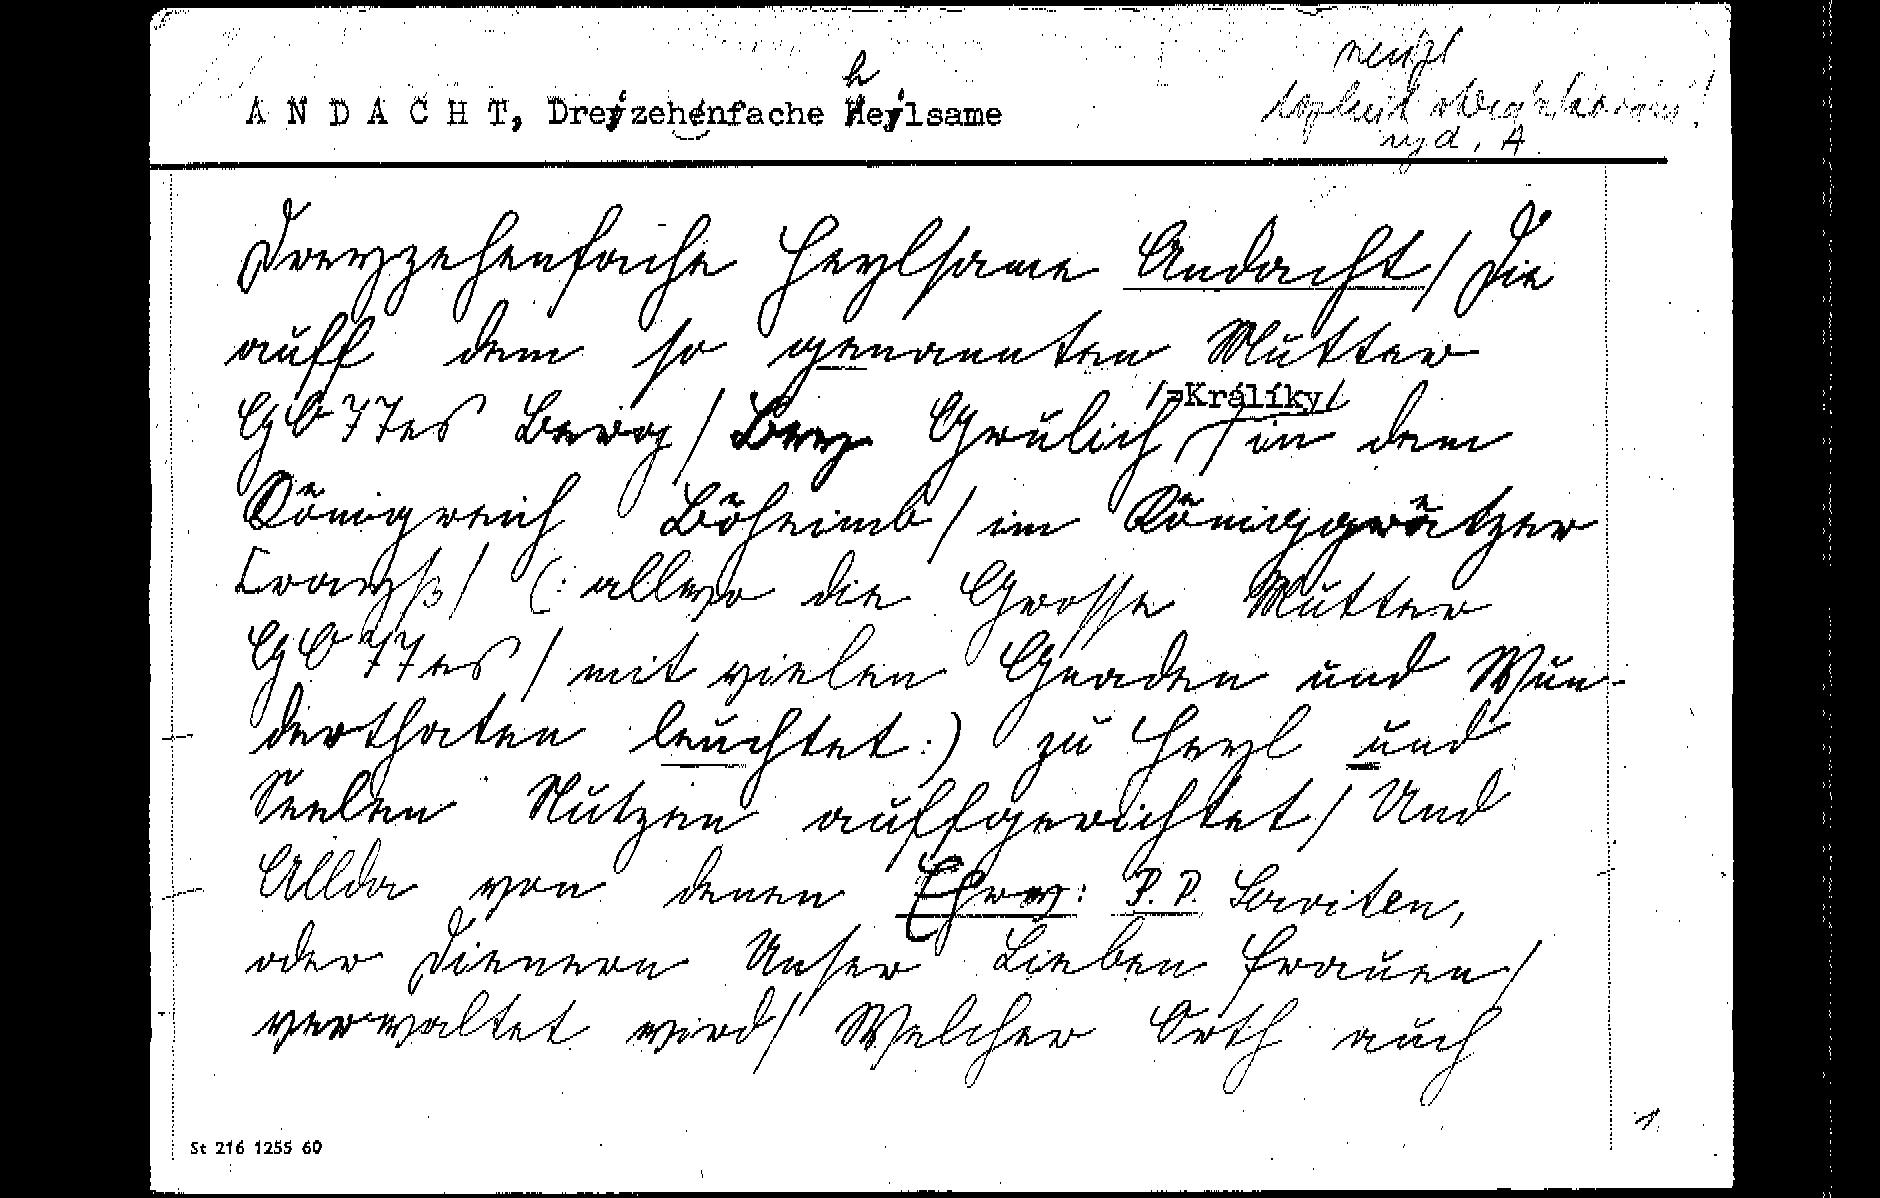 h
A N D A C H T, Dreyzehenfache Heylsame
vyd. A
Dreyzehenfache Heylsame Andacht / Die
auff dem so genannten Mutter
/=Králíky/
GOTTes Berg / Berg Grulich / in dem
Königreich Böheimb / im Königgrätzer
Crayß / (: allwo die Grosse Mutter
GOTTes / mit vielen Gnaden und Wun-
derthaten leuchtet :) zu Heyl und
Seelen Nutzen auffgerichtet / Und
Allda von denen Ehrw: P. P. Serviten,
oder Dienern Unser Lieben Frauen /
verwaltet wird / Welcher Orth auch
1
St 216 1255 60